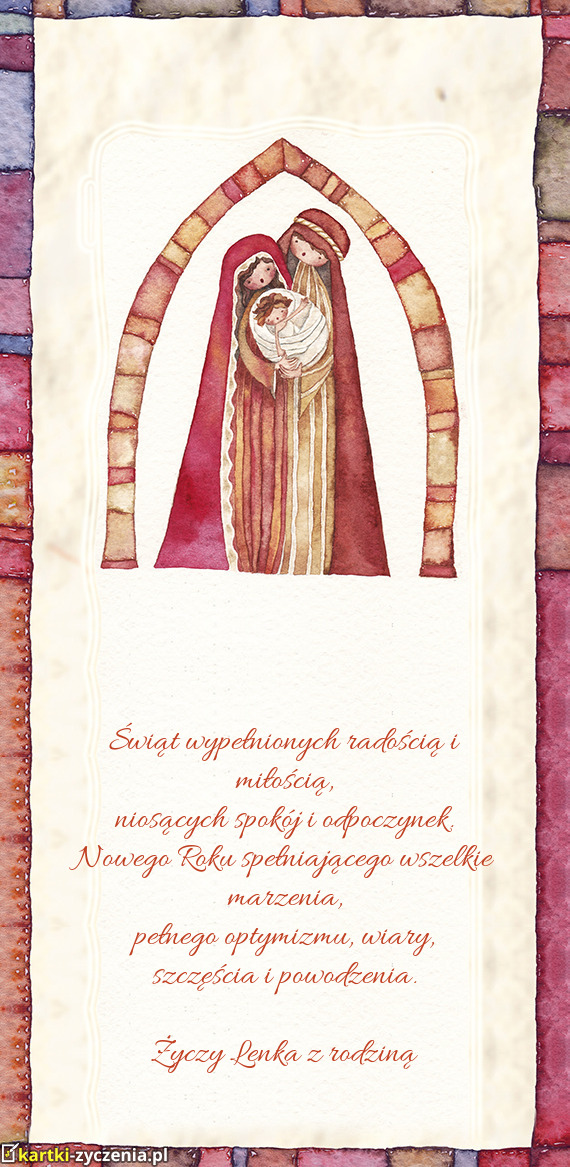 Świąt wypełnionych radością i
miłością,
niosących spokój i odpoczynek.
Nowego Roku spełniającego wszelkie
marzenia,
pełnego optymizmu, wiary,
szczęścia i powodzenia.
Życzy Lenka z rodziną
kartki-zyczenia.pl